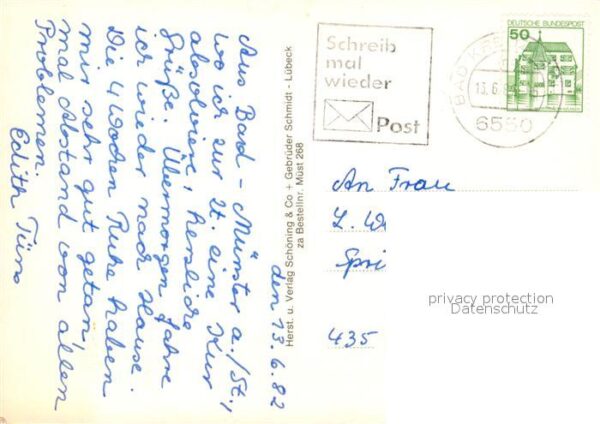 den 13.6.82
Aus Bad-Münster a./St.,
wo ich zur Zt. eine Kur
absolviere, herzliche
Grüße. Übermorgen fahre
ich wieder nach Hause.
Die 4 Wochen Ruhe haben
mir sehr gut getan,
mal Abstand von allen
Problemen.
Edith Tüns
Herst. u. Verlag Schöning & Co + Gebrüder Schmidt - Lübeck
za Bestellnr. Müst 268
Schreib
mal
wieder
Post
BAD KRE
13.6
6550
50
DEUTSCHE BUNDESPOST
An Frau
L. We
Spri
435
privacy protection
Datenschutz